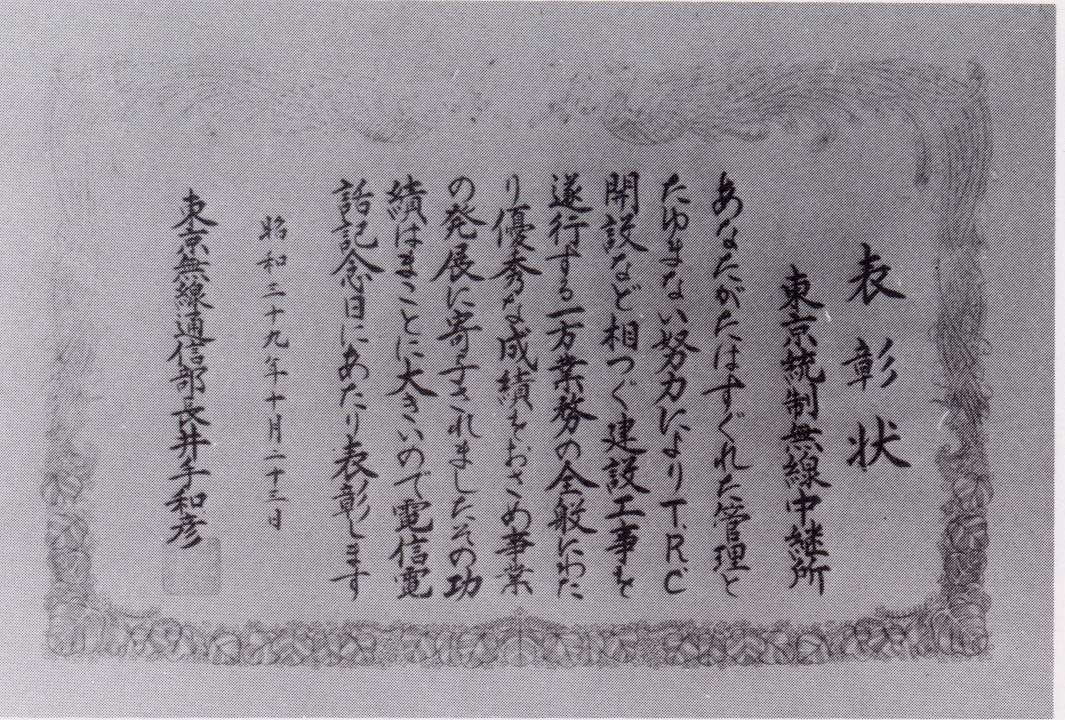 表彰状
東京統制無線中継所
あなたがたはすぐれた管理と
たゆまない努力によりT.R.C
開設など相つぐ建設工事を
遂行する一方業務の全般にわた
り優秀な成績をおさめ事業
の発展に寄与されましたその功
績はまことに大きいので電信電
話記念日にあたり表彰します
昭和三十九年十月二十三日
東京無線通信部長井手和彦